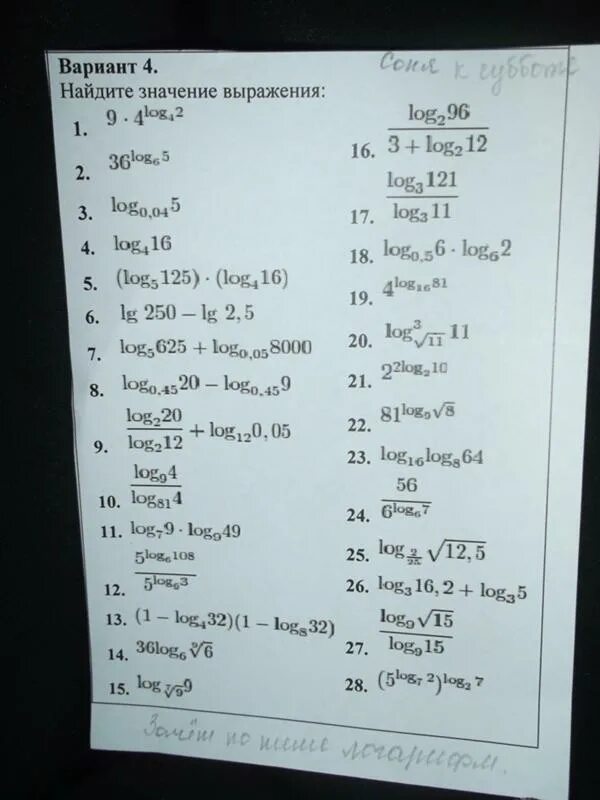 Соня к субботе
Вариант 4.
Найдите значение выражения:
1. 9 · 4^{log_4 2}
2. 36^{log_6 5}
3. log_{0,04} 5
4. log_4 16
5. (log_5 125) · (log_4 16)
6. lg 250 − lg 2,5
7. log_5 625 + log_{0,05} 8000
8. log_{0,45} 20 − log_{0,45} 9
9. \frac{log_2 20}{log_2 12} + log_{12} 0,05
10. \frac{log_9 4}{log_{81} 4}
11. log_7 9 · log_9 49
12. \frac{5^{log_6 108}}{5^{log_6 3}}
13. (1 − log_4 32)(1 − log_8 32)
14. 36log_6 \sqrt[9]{6}
15. log_{\sqrt[7]{9}} 9
16. \frac{log_2 96}{3 + log_2 12}
17. \frac{log_3 121}{log_3 11}
18. log_{0,5} 6 · log_6 2
19. 4^{log_{16} 81}
20. log^3_{\sqrt{11}} 11
21. 2^{2log_2 10}
22. 81^{log_9 \sqrt{8}}
23. log_{16} log_8 64
24. \frac{56}{6^{log_6 7}}
25. log_{\frac{2}{25}} \sqrt{12,5}
26. log_3 16,2 + log_3 5
27. \frac{log_9 \sqrt{15}}{log_9 15}
28. (5^{log_7 2})^{log_2 7}
Зачёт по логарифм.